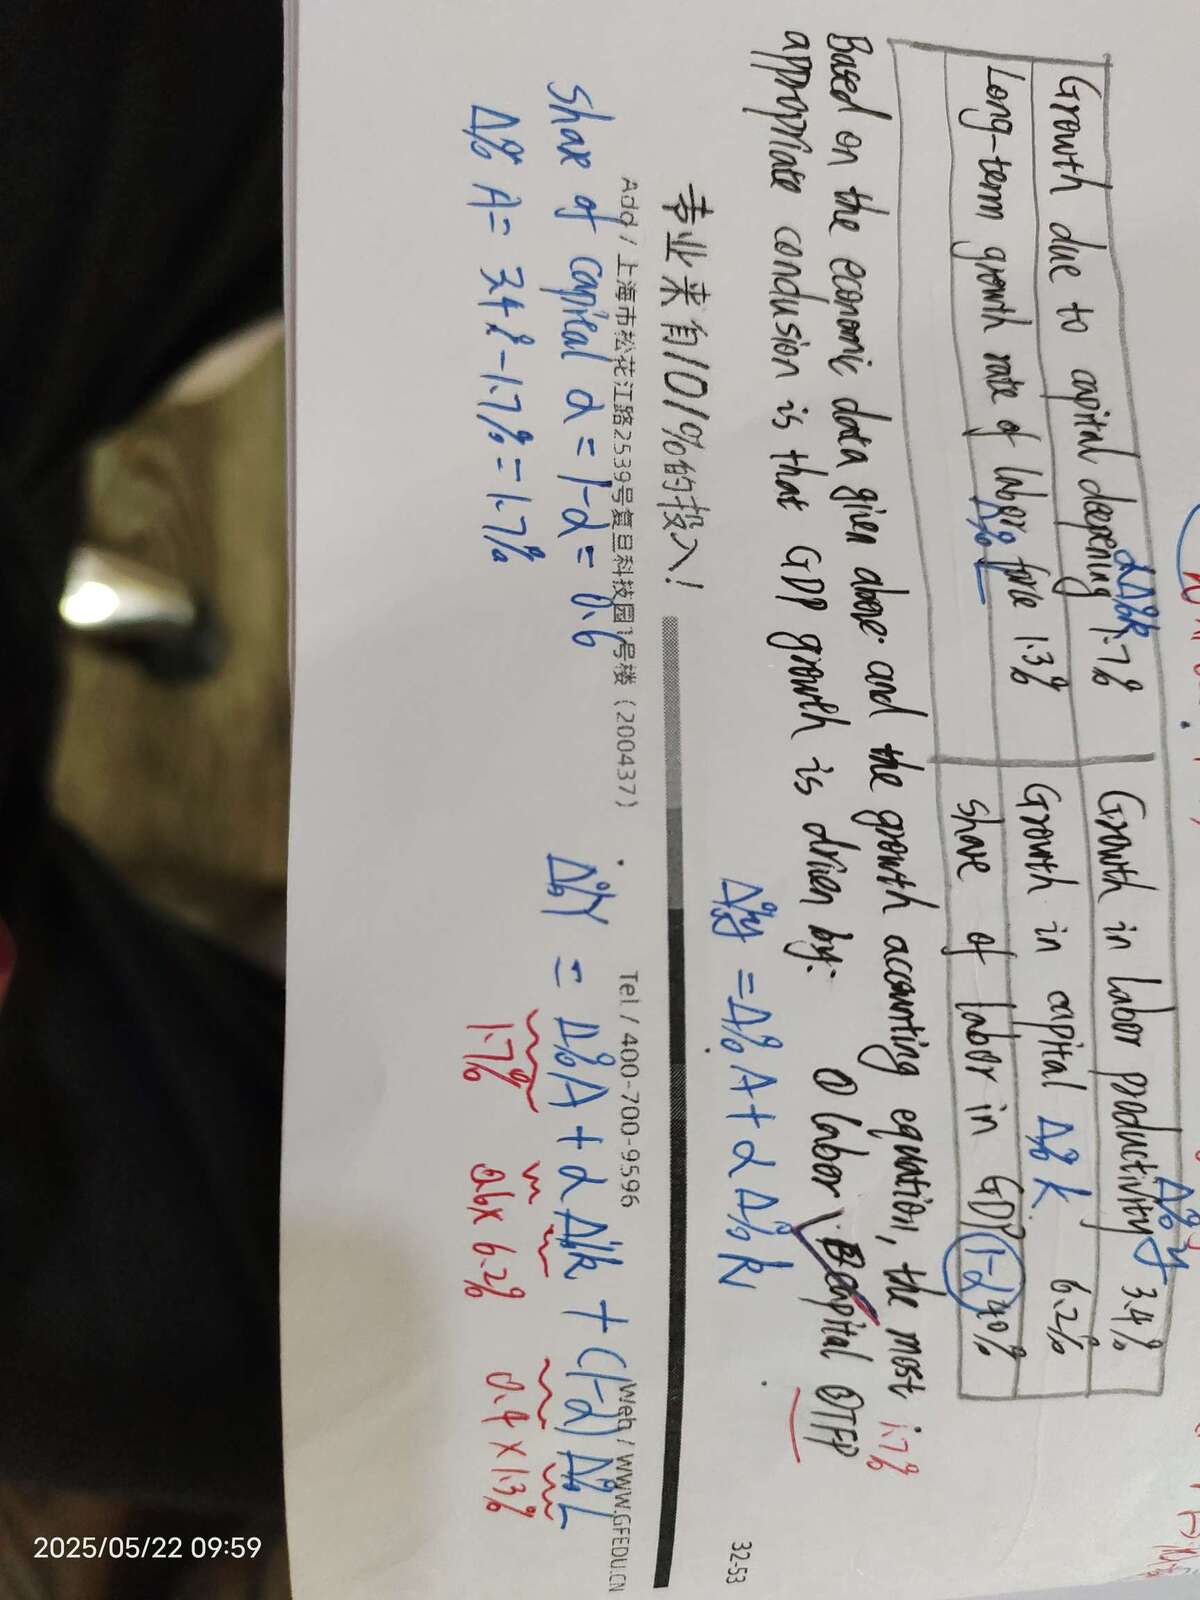 Growth due to capital deepening 1.7% Growth in labor productivity 3.4%
α Δ%k Δ%y
Long-term growth rate of labor force 1.3% Growth in capital Δ%k 6.2%
Δ%L
Share of labor in GDP 1-α 40%
Based on the economic data given above and the growth accounting equation, the most
appropriate conclusion is that GDP growth is driven by: ① labor ② capital ③ TFP
1.7%
Δ%y = Δ%A + α Δ%k
32-53
专业来自101%的投入!
Add / 上海市松花江路2539号复旦科技园1号楼 (200437) Tel / 400-700-9596 Web / WWW.GFEDU.CN
Share of capital α = 1-α = 0.6
Δ%Y = Δ%A + α Δ%k + (1-α) Δ%L
Δ%A = 3.4% - 1.7% = 1.7%
1.7% 0.6 × 6.2% 0.4 × 1.3%
2025/05/22 09:59